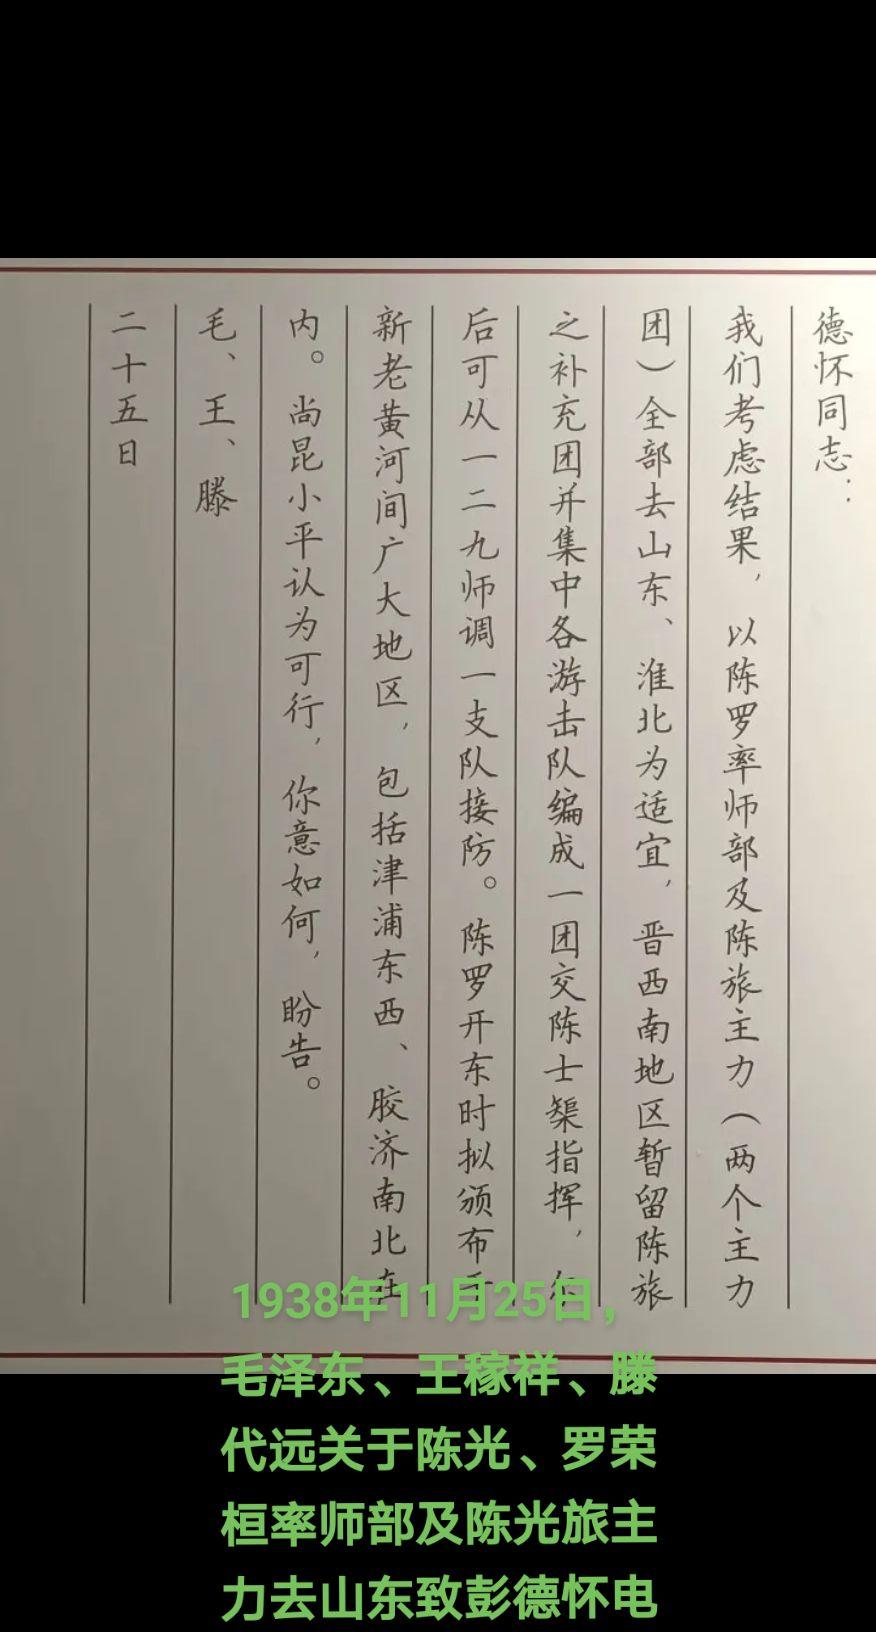 德怀同志：
我们考虑结果，以陈罗率师部及陈旅主力（两个主力
团）全部去山东、淮北为适宜，晋西南地区暂留陈旅
之补充团并集中各游击队编成一团交陈士榘指挥，
后可从一二九师调一支队接防。陈罗开东时拟颁布于
新老黄河间广大地区，包括津浦东西、胶济南北在
内。尚昆小平认为可行，你意如何，盼告。
毛、王、滕
二十五日
1938年11月25日，
毛泽东、王稼祥、滕
代远关于陈光、罗荣
桓率师部及陈光旅主
力去山东致彭德怀电